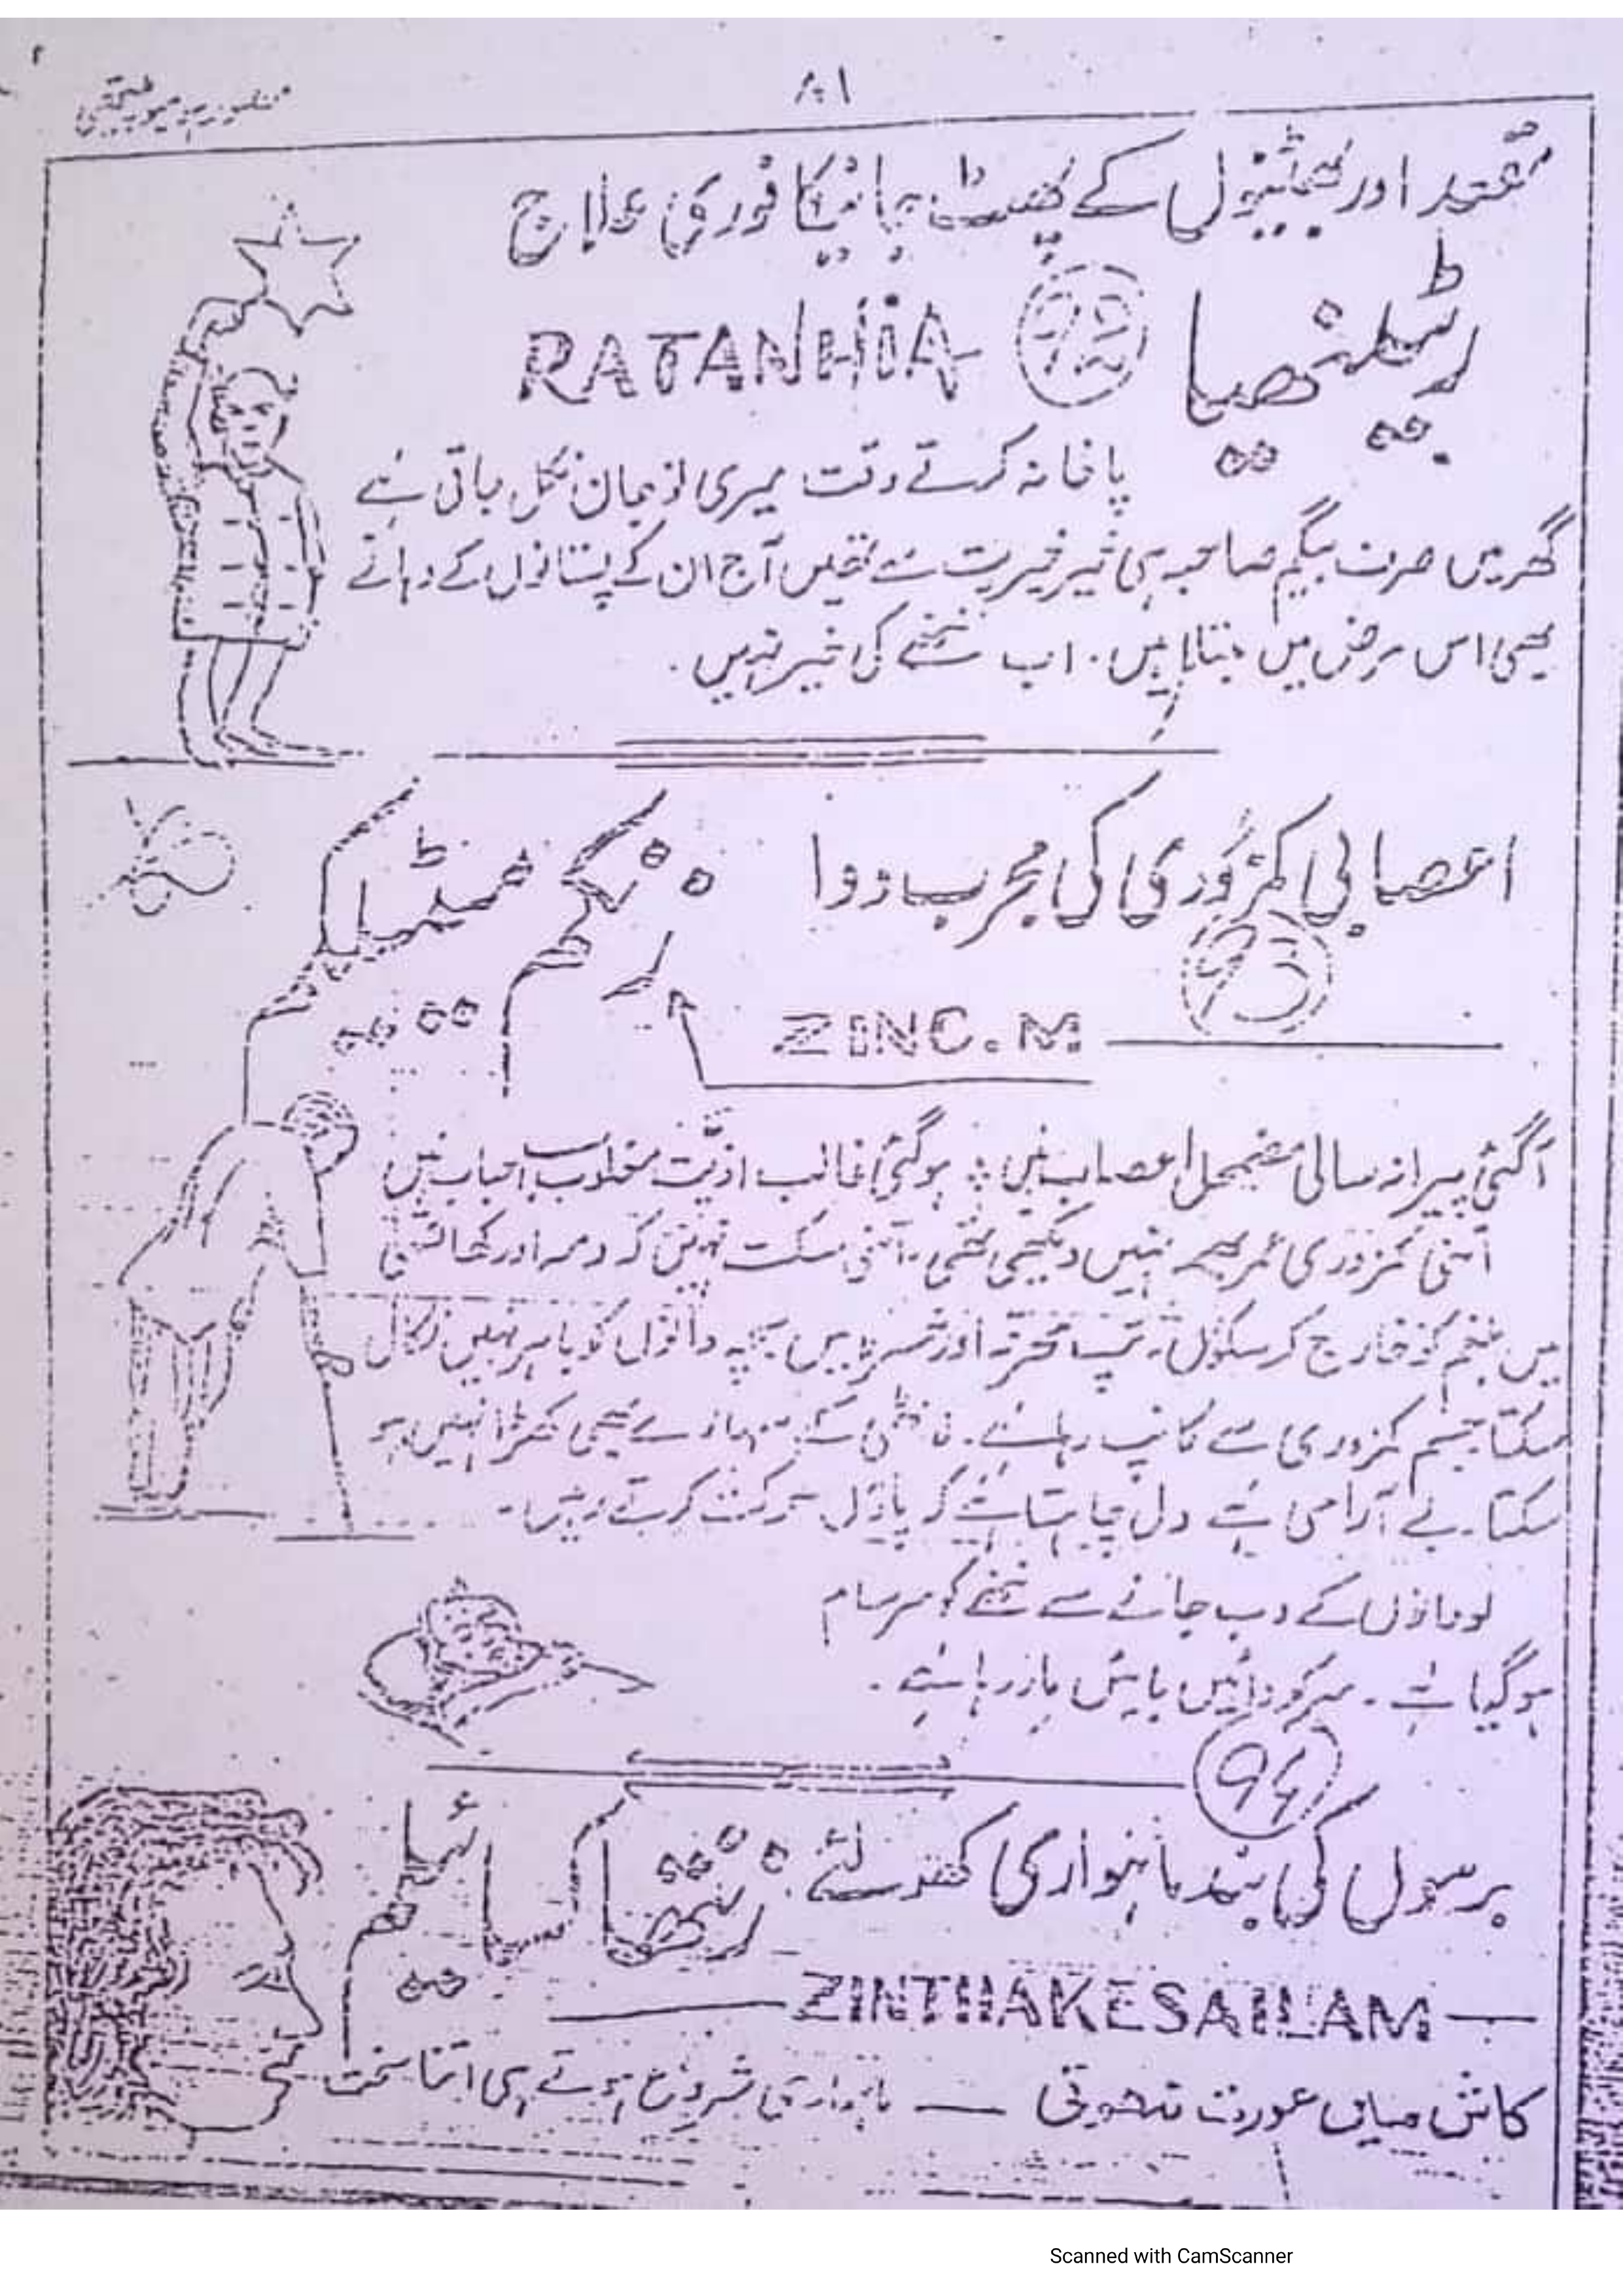 ۸۱
مقعد اور بھٹنیوں کے پھٹ جانیکا فوری علاج
رٹینھیا 92 RATANHIA
پاخانہ کرتے وقت میری تو جان نکل جاتی ہے
گھر میں صرف بیگم صاحبہ ہی خیر خیریت سے تھیں آج ان کے پستانوں کے دہانے
بھی اس مرض میں مبتلا ہیں۔ اب ننھے کی خیر نہیں۔
اعصابی کمزوری کی مجرب دوا
زنکم مٹیلیکم
93
ZINC.M
آگئی پیرانہ سالی مضمحل اعصاب ہیں ؛ ہوگئی غالب اذیت مغلوب احباب ہیں
اتنی کمزوری عمر بھر نہیں دیکھی تھی۔ اتنی سکت نہیں کہ دمہ اور کھانسی
میں بلغم کو خارج کر سکوں۔ تپ محرقہ اور خسرہ میں بچہ دانوں کو باہر نہیں نکال
سکتا جسم کمزوری سے کانپ رہا ہے۔ کے سہارے بھی کھڑا نہیں ہو
سکتا۔ بے آرامی ہے دل چاہتا ہے کہ پاؤں حرکت کرتے رہیں۔
کے دب جانے سے ننھے کو سرسام
ہوگیا ہے۔ سر کو دائیں بائیں مار رہا ہے۔
94
برسوں کی بند ماہواری کھولئے
زنتھاکسائیلم
ZINTHAKESAILAM
کاش میں عورت نہ ہوتی — ماہواری شروع ہوتے ہی اتنا سخت
Scanned with CamScanner